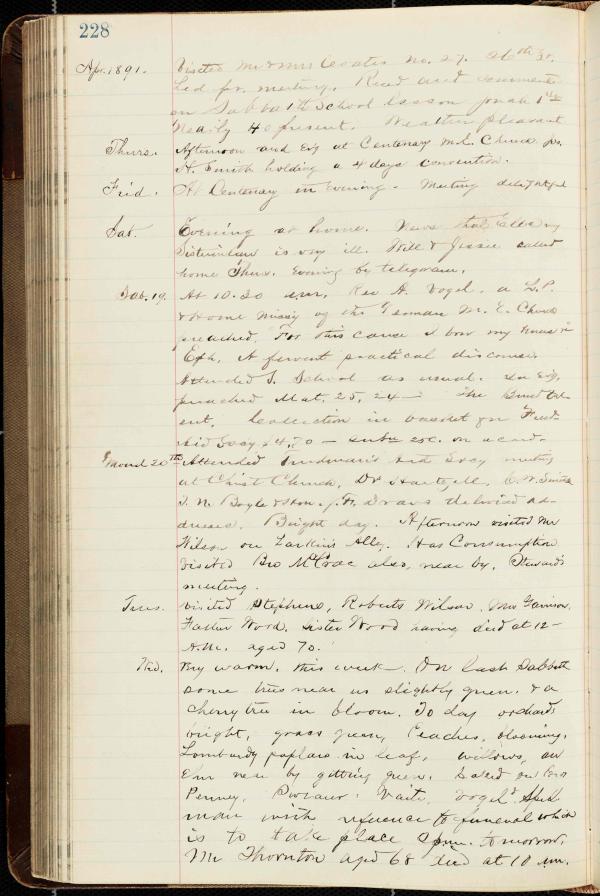 228
Apr. 1891. Visited Mr & Mrs No. 27. 26th St.
Led pr. meeting. Read and comments
on Sabbath School lesson Jonah 1st
Nearly 40 present. Weather pleasant
Thurs. Afternoon and Evg at Centenary M.E. Church
H. Smith holding a 4 days convention.
Frid. At Centenary in evening. Meeting delightful
Sat. Evening at home. News that Ella my
Sisterinlaw is very ill. Will & Jessie called
home Thurs. Evening by telegram.
Sab. 19. At 10.30 a.m. Rev A. Vogel. a L.P.
& Home Missy of the German M. E. Church
preached. For this cause I bow my knees in
Eph. A fervent practical discourse.
Attended S. School as usual. In Evg.
preached Mat. 25, 24 — The
ent. Collection in basket for Freed-
Aid Socy \$4.70 — subn 25c. on card.
Mond 20th Attended Freedman's Aid Socy meeting
at Christ Church. Dr Hartzell, C.W. Smith
T. N. Boyle & Hon. delivered ad-
dresses. Bright day. Afternoon visited Mr
Wilson on Larkins Alley. Has Consumption
Visited Bro McCrae also, near by. Steward's
meeting.
Tues. Visited Stephens, Roberts Wilson, Mrs Garrison,
Father Wood. Sister Wood having died at 12 —
A.M. aged 70.
Wed. Very warm, this week —. On last Sabbath
some trees near us slightly green. & a
cherry tree in bloom. To day orchards
bright, grass green, Peaches, blooming,
Lombardy poplars in leaf, willows, an
Elm near by getting green. Called on Bros
Penney, Waite, Vogel &
man with reference to funeral which
is to take place 2 pm. tomorrow,
Mr Thornton aged 68 died at 10 am.